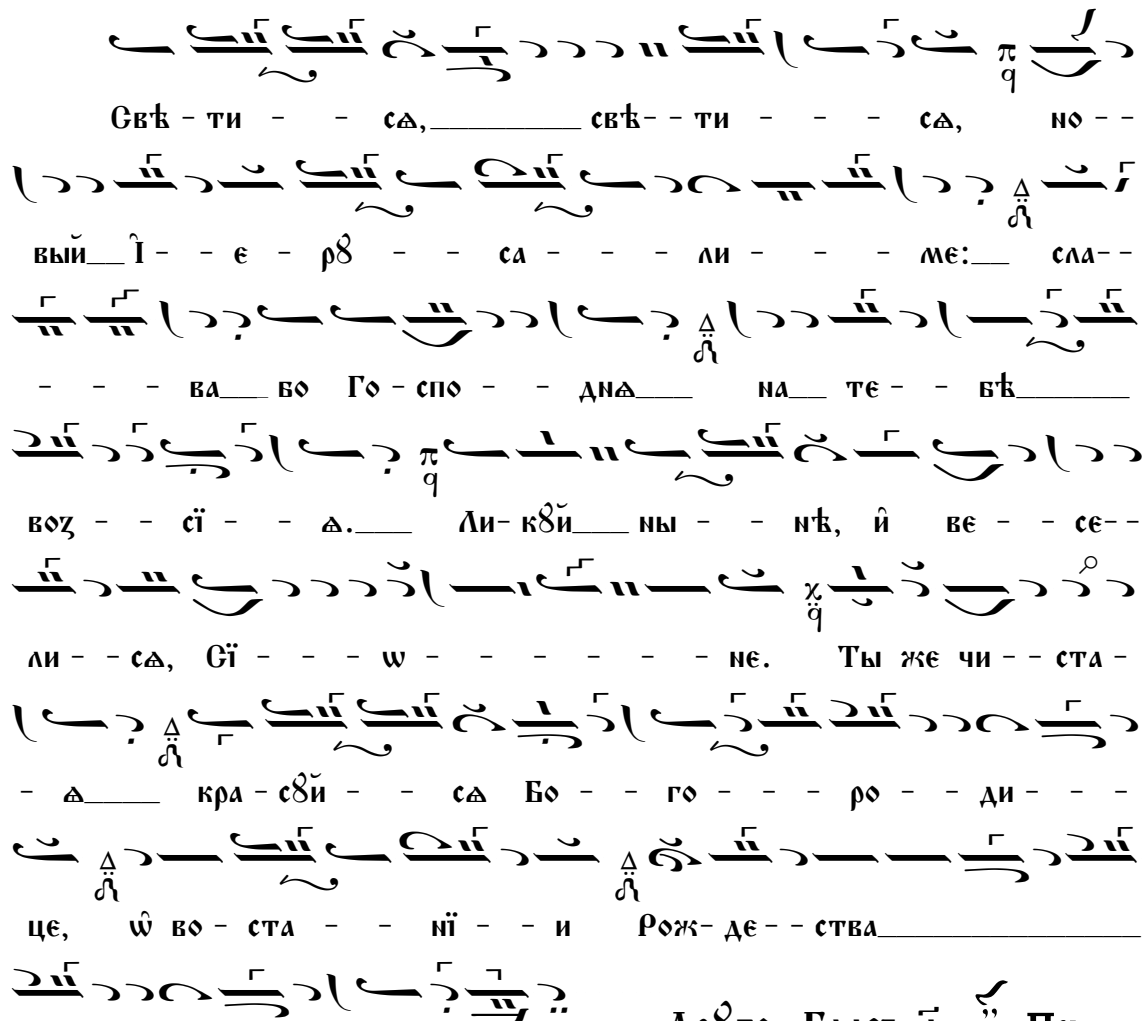 Свѣ - ти - - сѧ,________ свѣ - - ти - - - сѧ, но - -
вый__ І҆ - - е - рꙋ - - са - - - ли - - - ме:__ сла - -
- - - ва___ бо Го - спо - - днѧ___ на__ те - - бѣ______
воз - - сї - - ѧ.___ Ли - кꙋй___ ны - - нѣ, и҆ ве - - се - -
ли - - сѧ, Сї - - - ѡ - - - - - - не. Ты же чи - - ста -
- ѧ____ кра - сꙋй - - сѧ Бо - - го - - - ро - - ди - - -
це, ѡ҆ во - ста - - нї - - и Рож - де - - ства______________